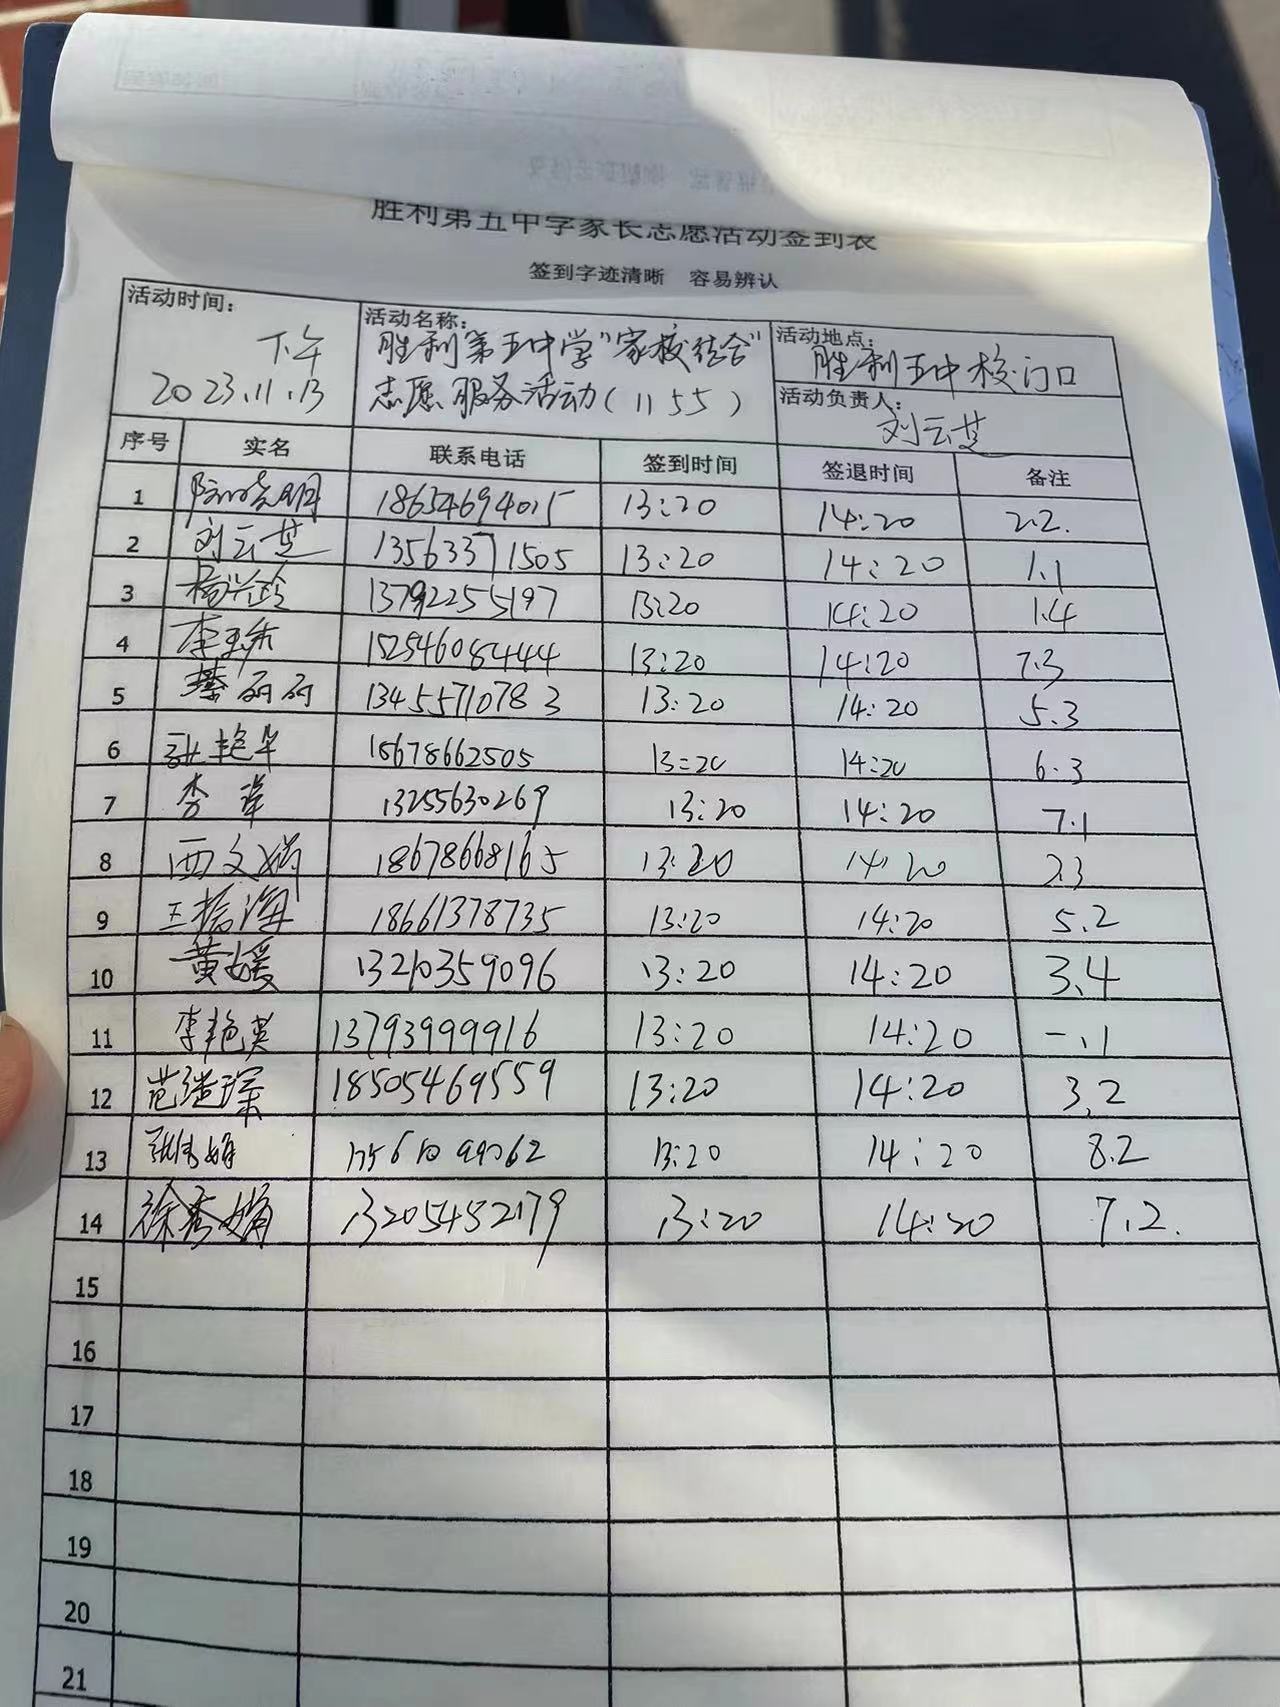 胜利第五中学家长志愿活动签到表
签到字迹清晰 容易辨认
活动时间：
下午
2023.11.13
活动名称：
胜利第五中学"家校结合"
志愿服务活动(1155)
活动地点：
胜利五中校门口
活动负责人：
刘云芝
序号 实名 联系电话 签到时间 签退时间 备注
1 18654694015 13:20 14:20 2.2.
2 刘云芝 13563371505 13:20 14:20 1.1
3 杨兴玲 13792255197 13:20 14:20 1.4
4 李玉乐 15254608444 13:20 14:20 7.3
5 綦丽丽 13455710783 13:20 14:20 5.3
6 张艳华 18678662505 13:20 14:20 6.3
7 李萍 13255630269 13:20 14:20 7.1
8 西文娟 18678668165 13:20 14:20 2.3
9 王振海 18661378735 13:20 14:20 5.2
10 黄媛 13210359096 13:20 14:20 3.4
11 李艳英 13793999916 13:20 14:20 一.1
12 范继琛 18505469559 13:20 14:20 3.2
13 张伟娟 13:20 14:20 8.2
14 徐秀娟 13205452179 13:20 14:20 7.2.
15
16
17
18
19
20
21